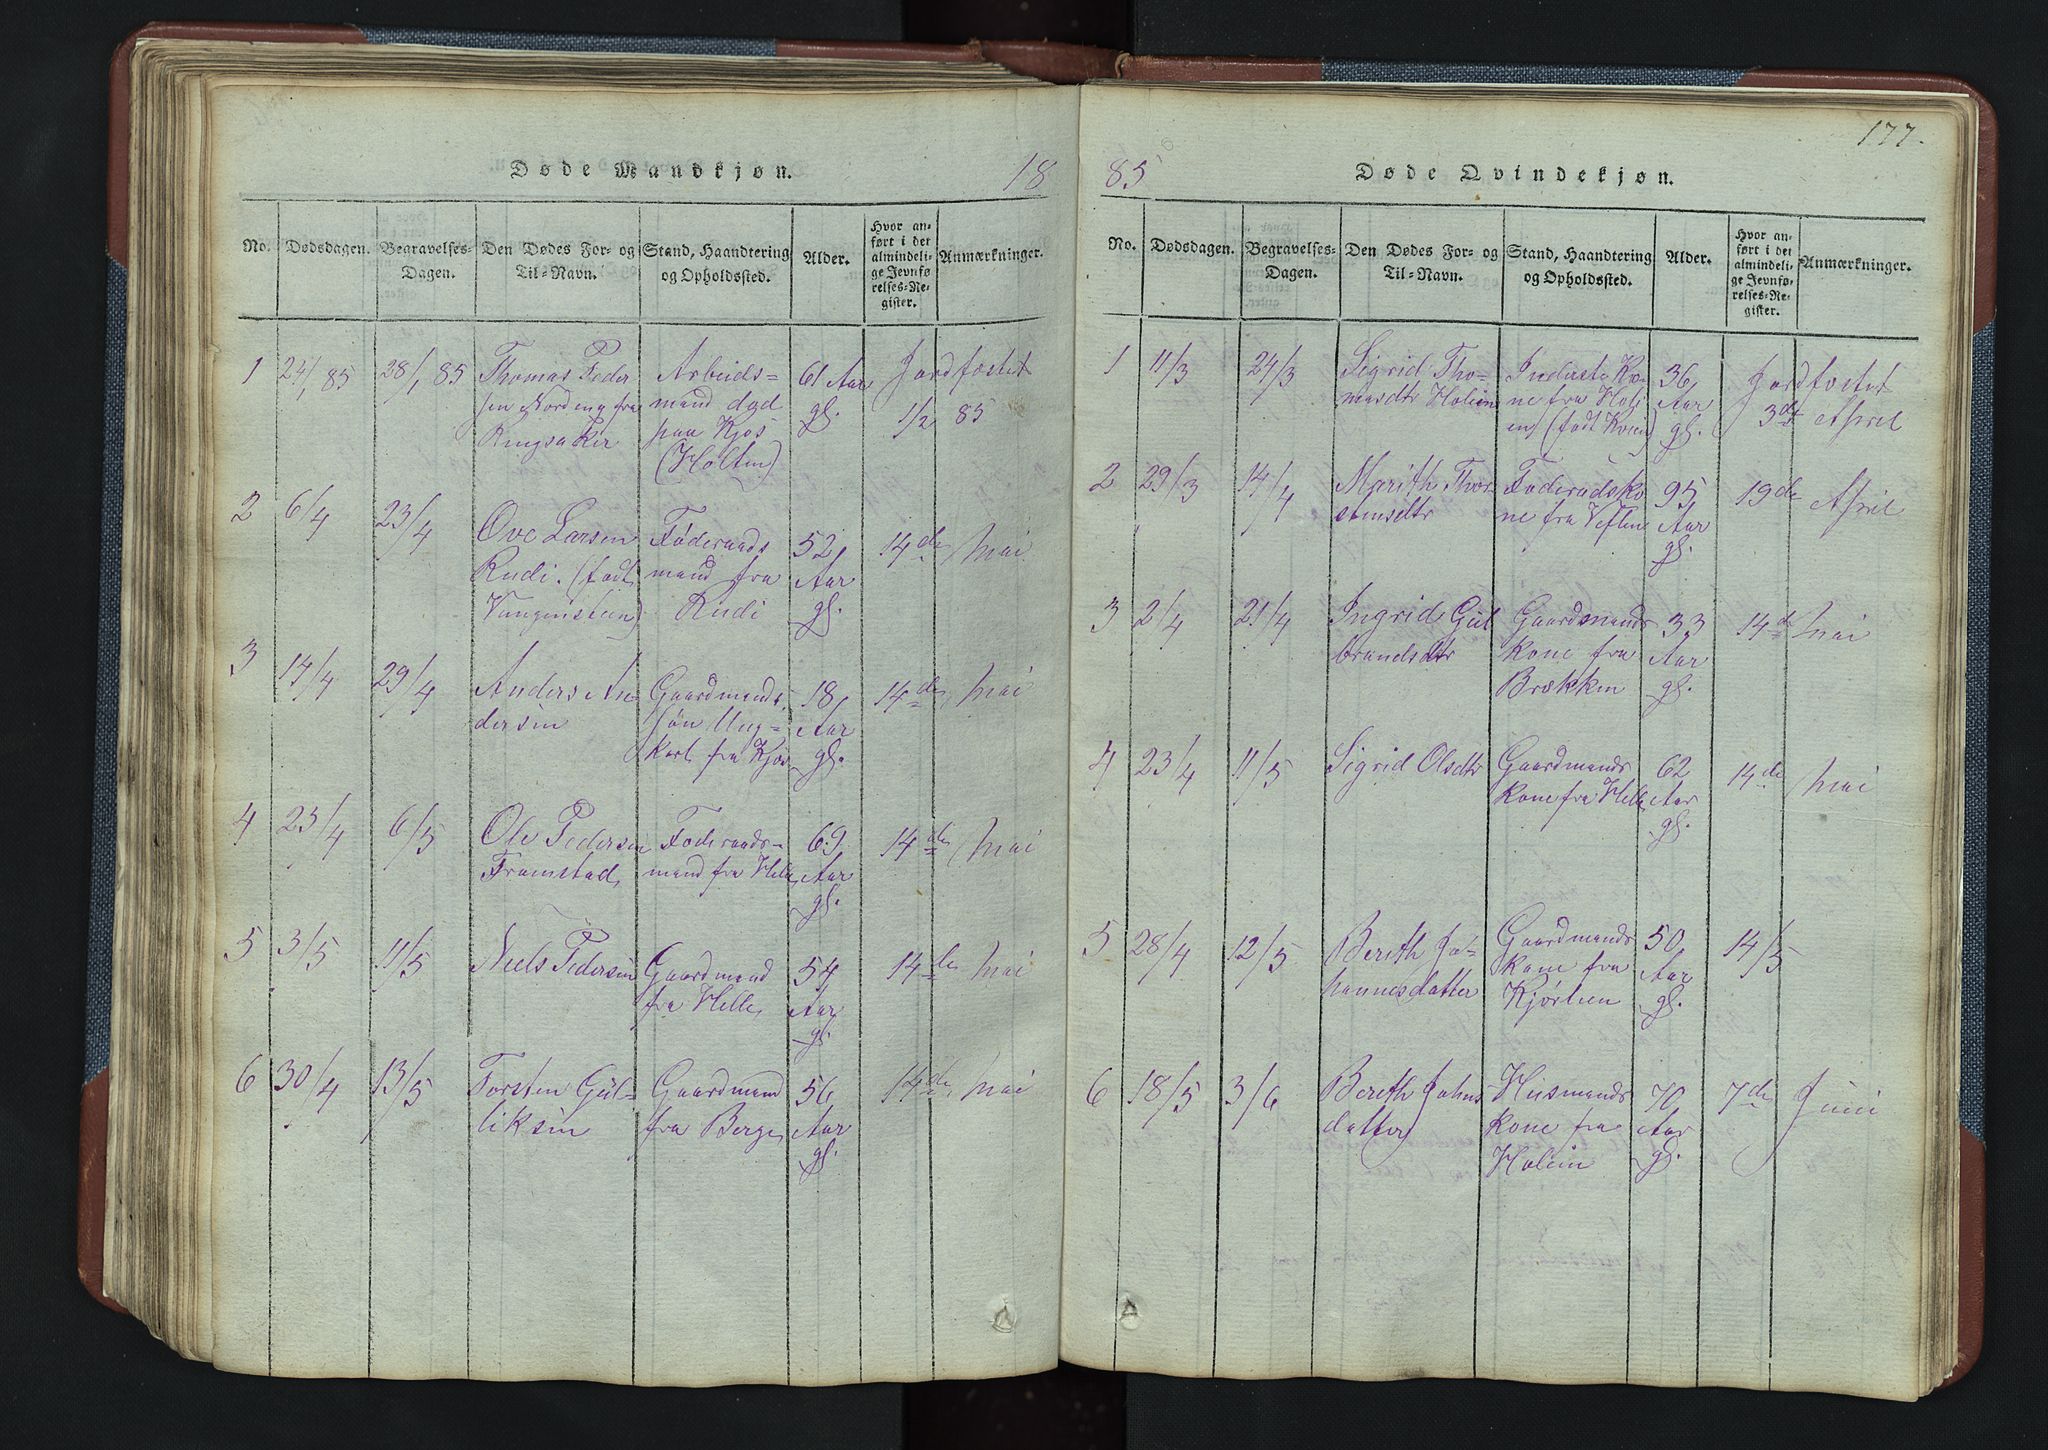 177.
Døde Mandkjøn. 18
No. Dødsdagen. Begravelses-Dagen. Den Dødes For- og Til-Navn. Stand, Haandtering og Opholdssted. Alder. Hvor anført i det almindelige Jevnførelses-Register. Anmærkninger.
1 24/1 85 28/1 85 Thomas Peder Arbeids- 61 Aar Jordfæstet
sen Nordeng fra mand død gl. 1/2 85
Ringsaker paa Kjos
(Holten)
2 6/4 23/4 Ove Larsen Føderaads 52 14de Mai
Rudi. (født mand fra Aar
Vangensteen) Rudi gl.
3 14/4 29/4 Anders An- Gaardmands 18 14de Mai
dersen søn Ung- Aar
karl fra Kjos gl.
4 23/4 6/5 Ole Pedersen Føderaads- 69 14de Mai
Framstad mand fra Helle Aar
gl.
5 3/5 11/5 Niels Pedersen Gaardmand 54 14de Mai
fra Helle Aar
gl.
6 30/4 13/5 Torsten Gul- Gaardmand 56 14de Mai
liksen fra Berge Aar
gl.
85 Døde Qvindekjøn.
No. Dødsdagen. Begravelses-Dagen. Den Dødes For- og Til-Navn. Stand, Haandtering og Opholdssted. Alder. Hvor anført i det almindelige Jevnførelses-Register. Anmærkninger.
1 11/3 24/3 Sigrid Tho- Inderste Ko- 36 Jordfæstet
masdtr Holien ne fra Holi Aar 3de April
en (født Kvien) gl.
2 29/3 14/4 Marith Thor Føderaadsko 95 19de April
stensdtr ne fra Veflen Aar
gl.
3 2/4 21/4 Ingrid Gul Gaardmands 33 14de Mai
brandsdtr kone fra Aar
Brækken gl.
4 23/4 11/5 Sigrid Olsdtr Gaardmands 62 14de Mai
kone fra Helle Aar
gl.
5 28/4 12/5 Bereth Jo- Gaardmands 50 14/5
hannesdatter kone fra Aar
Kjørlien gl.
6 18/5 3/6 Bereth Johns Husmands 70 7de Juni
datter kone fra Aar
Holein gl.